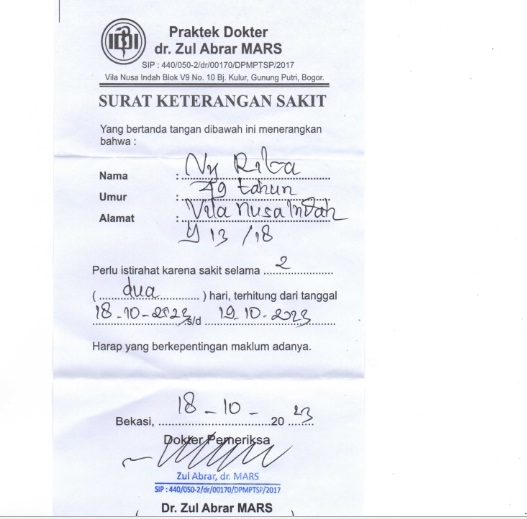 IDI
Praktek Dokter
dr. Zul Abrar MARS
SIP : 440/050-2/dr/00170/DPMPTSP/2017
Vila Nusa Indah Blok V9 No. 10 Bj. Kulur, Gunung Putri, Bogor.
SURAT KETERANGAN SAKIT
Yang bertanda tangan dibawah ini menerangkan
bahwa :
Nama : Ny Riba
Umur : 49 tahun
Alamat : Vila Nusa Indah
y 13 / 18
Perlu istirahat karena sakit selama 2
( dua ) hari, terhitung dari tanggal
18-10-2023 s/d 19.10-2023
Harap yang berkepentingan maklum adanya.
Bekasi, 18-10- 20 23
Dokter Pemeriksa
Zul Abrar, dr. MARS
SIP : 440/050-2/dr/00170/DPMPTSP/2017
( Dr. Zul Abrar MARS )